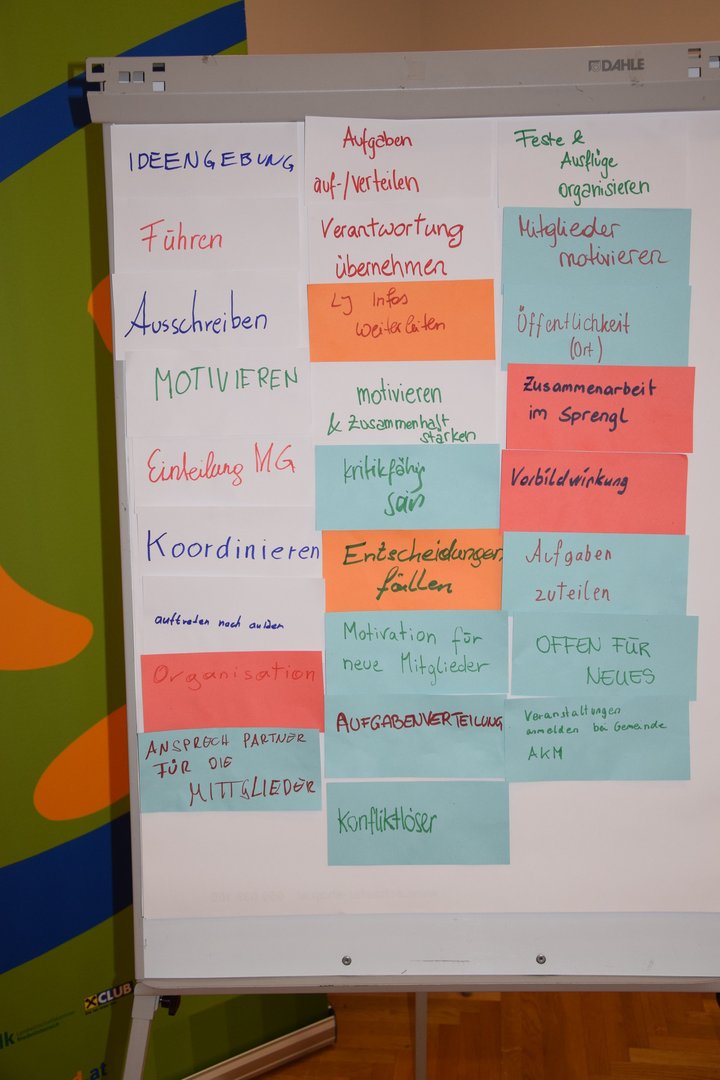 DAHLE
IDEENGEBUNG
Führen
Ausschreiben
MOTIVIEREN
Einteilung MG
Koordinieren
auftreten nach außen
Organisation
ANSPRECH PARTNER
FÜR DIE
MITTGLIEDER
Aufgaben
auf-/verteilen
Verantwortung
übernehmen
LJ Infos
weiterleiten
motivieren
& Zusammenhalt
stärken
kritikfähig
sein
Entscheidungen
fällen
Motivation für
neue Mitglieder
AUFGABENVERTEILUNG
Konfliktlöser
Feste &
Ausflüge
organisieren
Mitglieder
motivieren
Öffentlichkeit
(Ort)
Zusammenarbeit
im Sprengl
Vorbildwirkung
Aufgaben
zuteilen
OFFEN FÜR
NEUES
Veranstaltungen
anmelden bei Gemeinde
AKM
CLUB
lk
.at